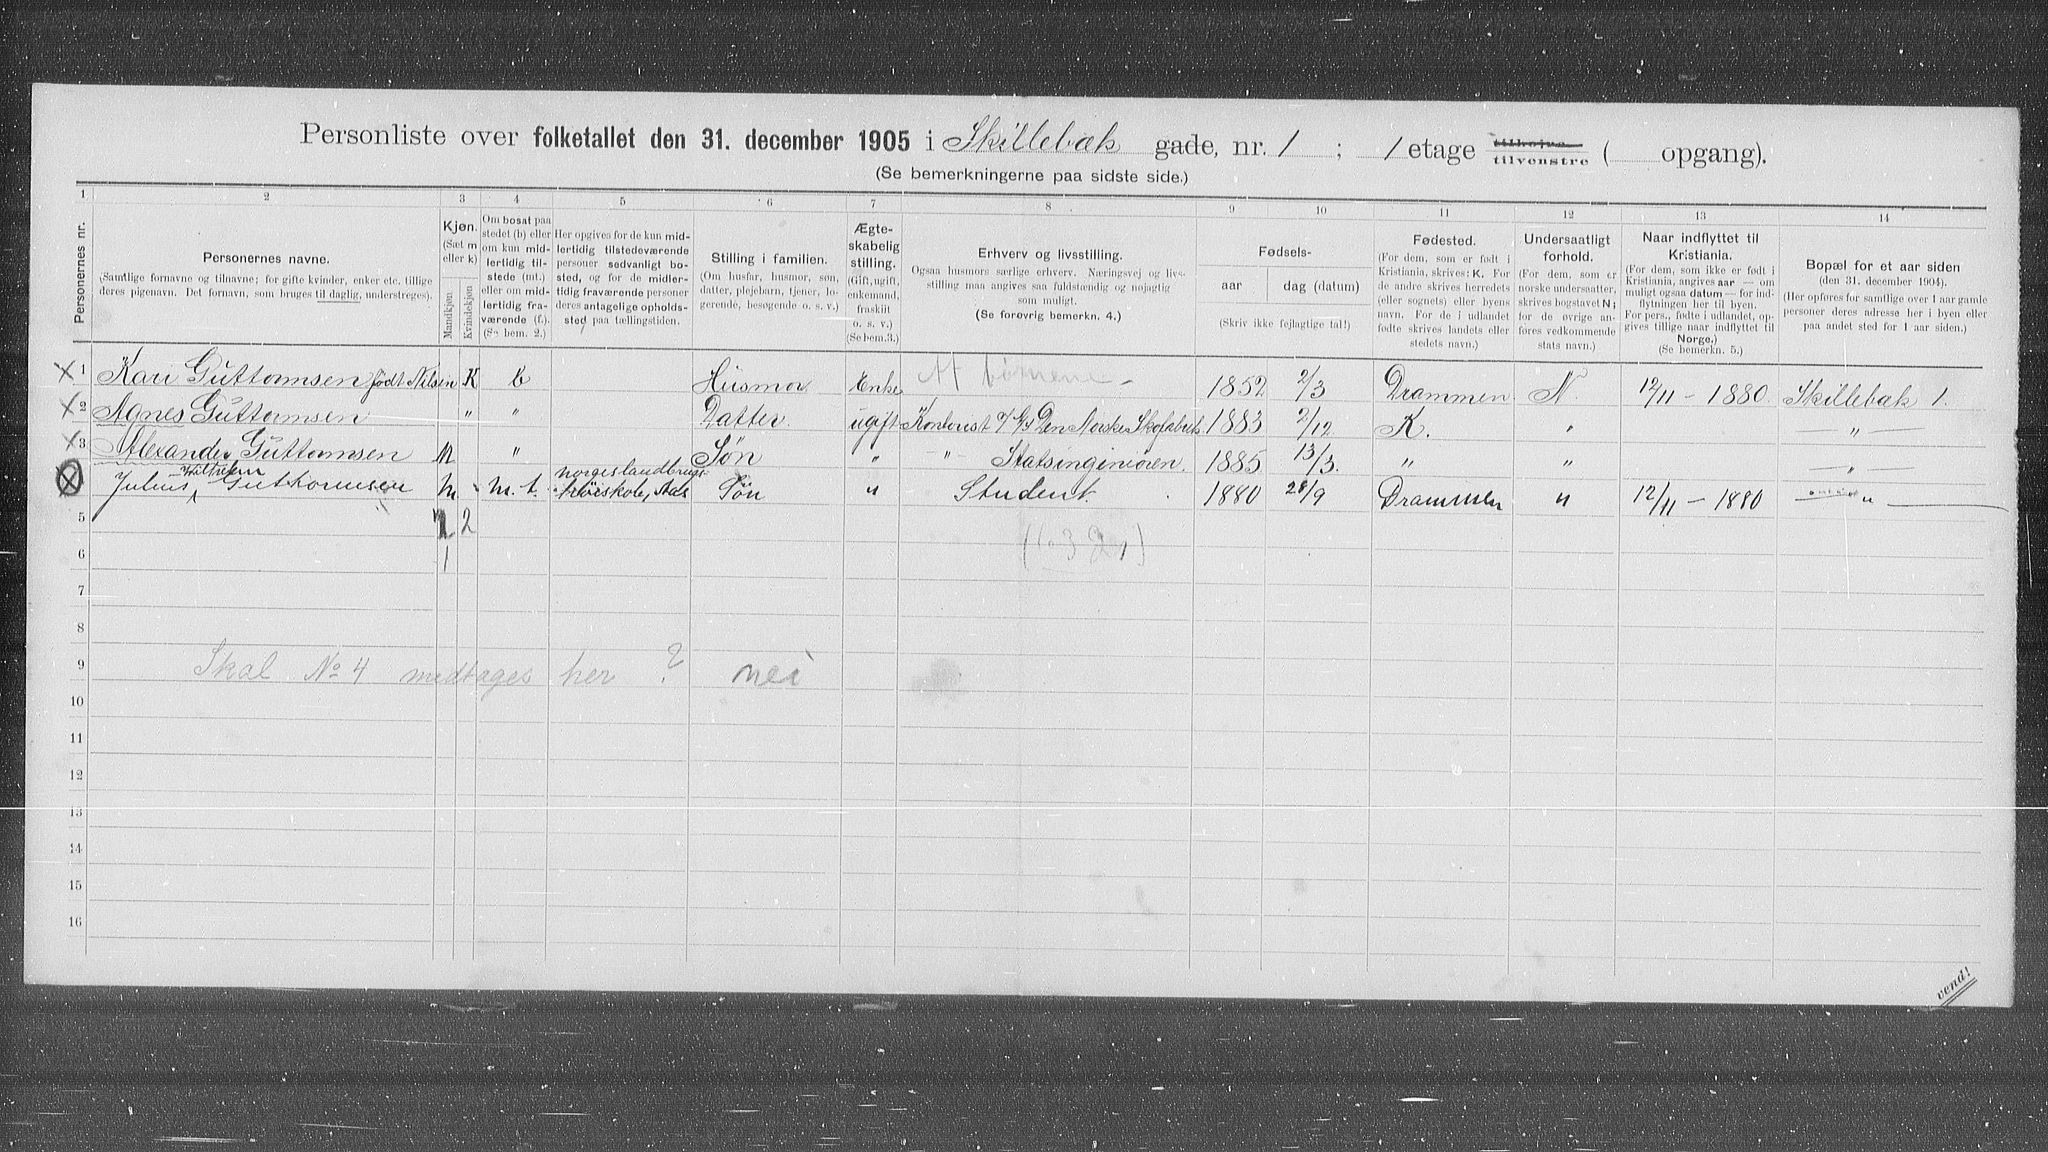 Personliste over folketallet den 31. december 1905 i Skillebæk gade, nr. 1 ; 1 etage tilhøjre tilvenstre ( opgang).
(Se bemerkningerne paa sidste side.)
1 2 3 4 5 6 7 8 9 10 11 12 13 14
Personernes nr.
Personernes navne.
(Samtlige fornavne og tilnavne; for gifte kvinder, enker etc. tillige deres pigenavn. Det fornavn, som bruges til daglig, understreges).
Kjøn.
(Sæt m eller k)
Mandkjøn.
Kvindekjøn
Om bosat paa stedet (b) eller om kun midlertidig tilstede (mt.) eller om midlertidig fraværende (f.). (Se bem. 2.)
Her opgives for de kun midlertidig tilstedeværende personer sedvanligt bosted, og for de midlertidig fraværende personer deres antagelige opholdssted paa tællingstiden.
Stilling i familien.
(Om husfar, husmor, søn, datter, plejebarn, tjener, logerende, besøgende o. s. v.)
Ægteskabelig stilling.
(Gift, ugift, enkemand, fraskilt o. s. v.)
(Se bem.3.)
Erhverv og livsstilling.
Ogsaa husmors særlige erhverv. Næringsvej og livsstilling maa angives saa fuldstændig og nøjagtig som muligt.
(Se forøvrig bemerkn. 4.)
Fødsels-
aar
dag (datum)
(Skriv ikke fejlagtige tal!)
Fødested.
(For dem, som er født i Kristiania, skrives: K. For de andre skrives herredets (eller sognets) eller byens navn. For de i udlandet fødte skrives landets eller stedets navn.)
Undersaatligt forhold.
(For dem, som er norske undersaatter, skrives bogstavet N; for de øvrige anføres vedkommende stats navn.)
Naar indflyttet til Kristiania.
(For dem, som ikke er født i Kristiania, angives aar — om muligt ogsaa datum — for indflytningen her til byen. For pers., fødte i udlandet, opgives tillige naar indflyttet til Norge.)
(Se bemerkn. 5.)
Bopæl for et aar siden
(den 31. december 1904).
(Her opføres for samtlige over 1 aar gamle personer deres adresse her i byen eller paa andet sted for 1 aar siden.)
1 Kari Guttormsen født Nilsen K b Husmor Enke Af børnene 1852 2/3 Drammen N 12/11 - 1880 Skillebæk 1.
2 Agnes Guttormsen " " Datter ugift Kontorist Den Norske Skofabrik 1883 2/12 K. " — " —
3 Alexander Guttormsen M " Søn " " Statsingeniøren. 1885 13/3. " " — " —
Julius Wilhelm Guthormsen M m.t. norges landbrugshøiskole, Aas Søn " Student 1880 28/9 Drammen " 12/11 - 1880 "
5 2
6 1
7
8
9 Skal No 4 medtages her ? nei
10
11
12
13
14
15
16
vend!